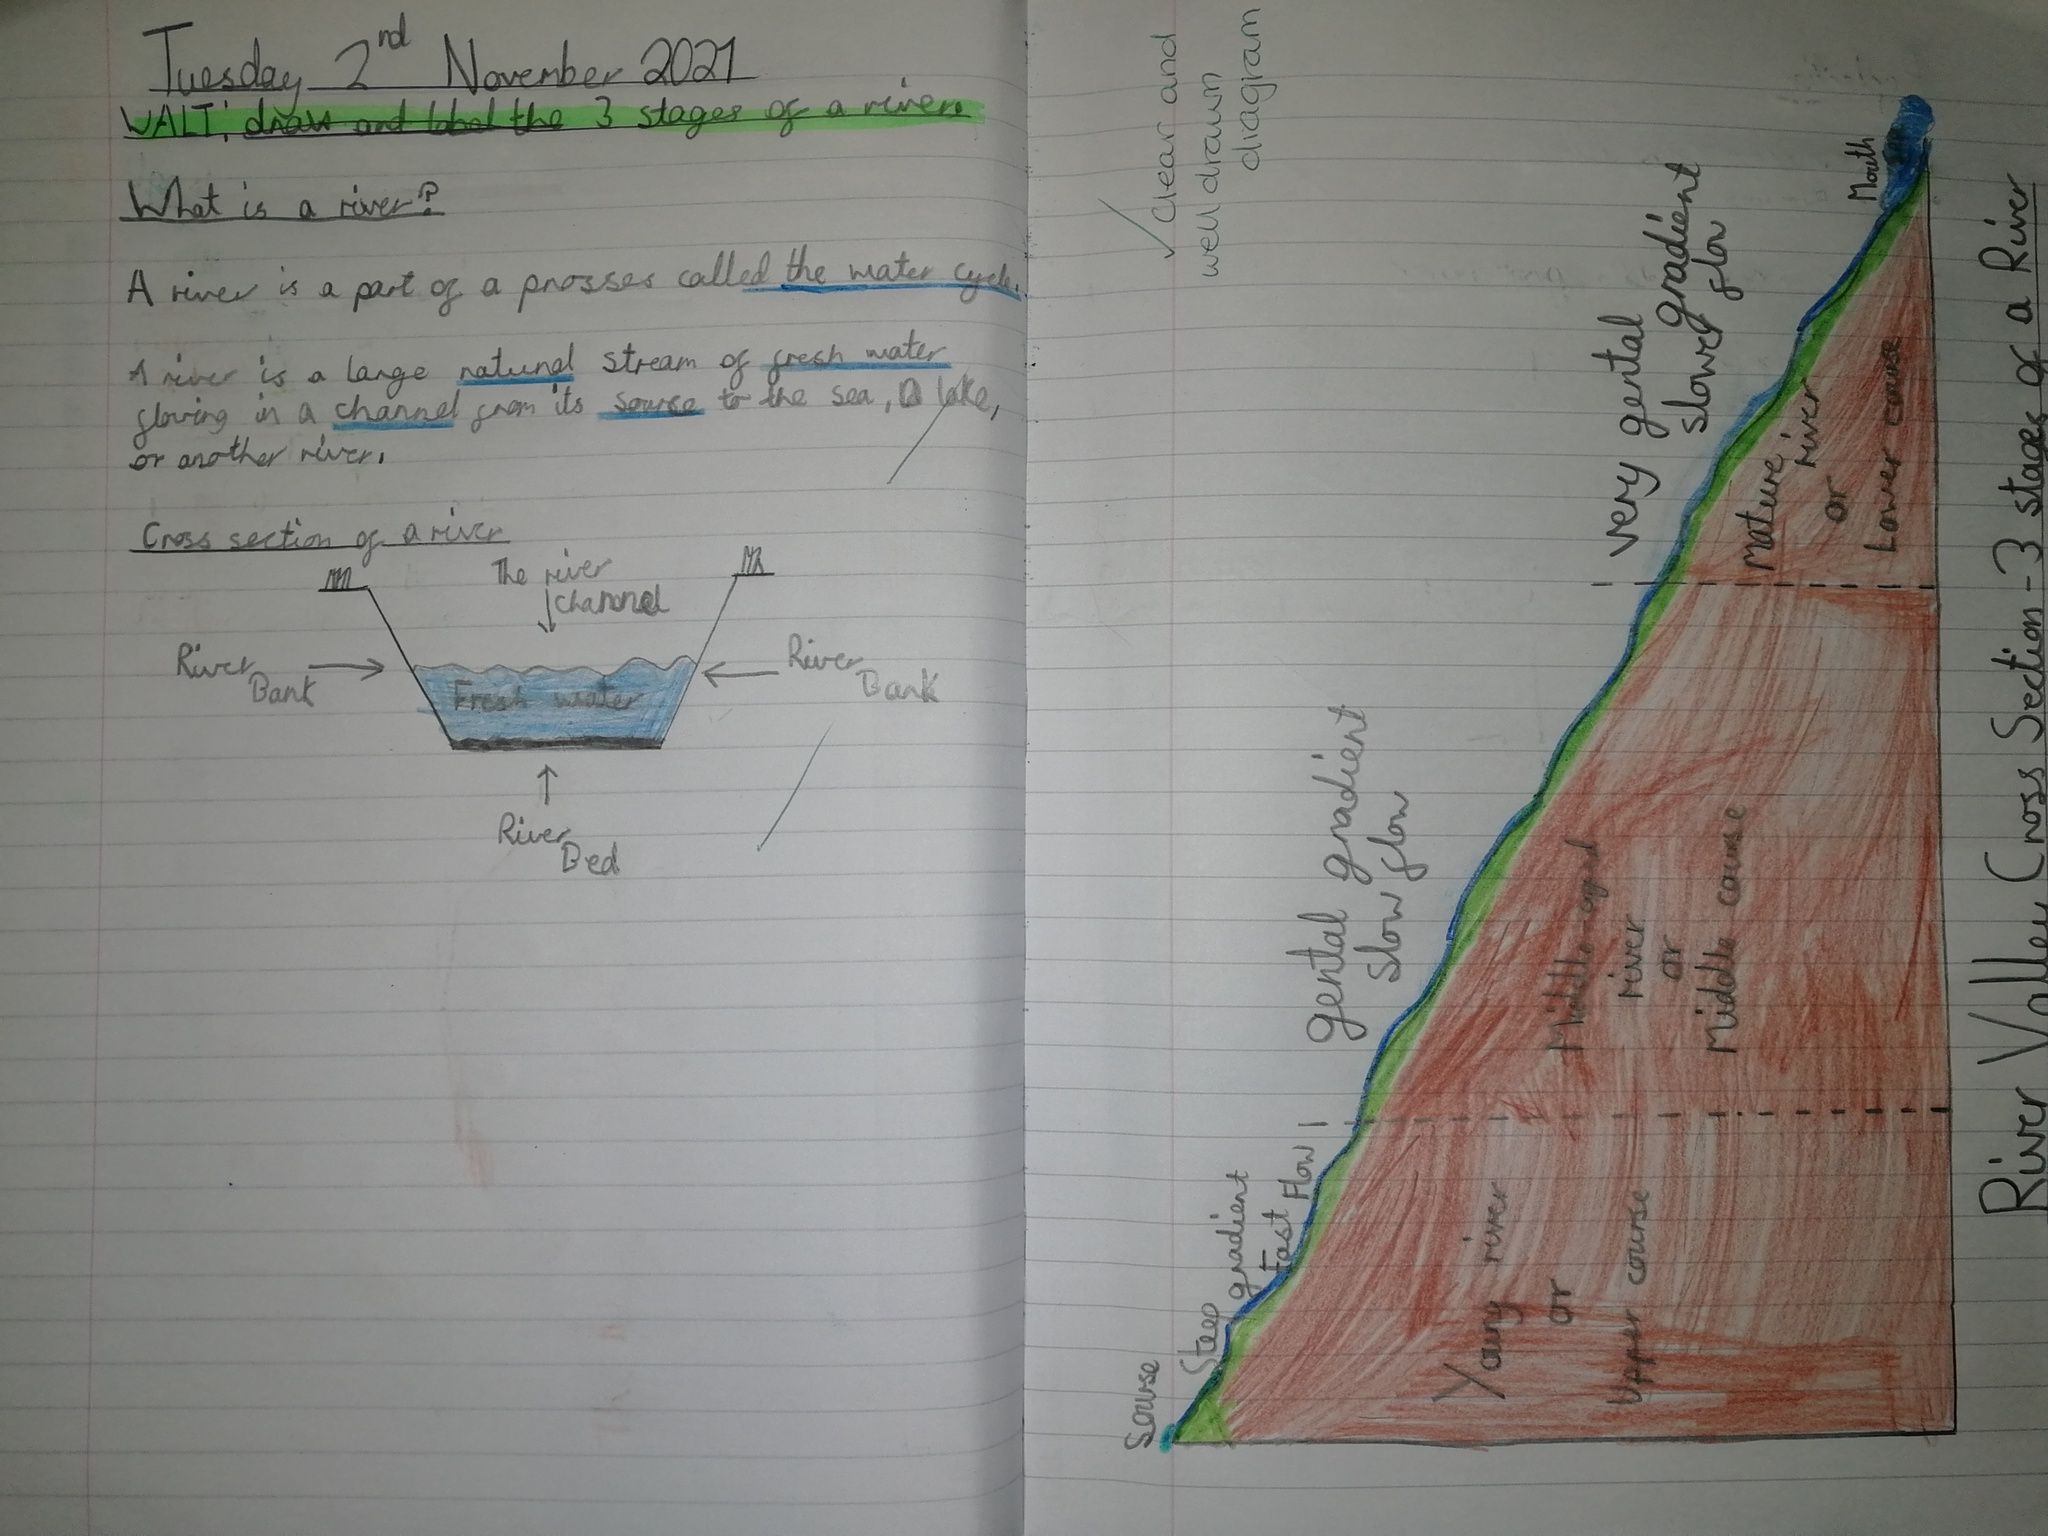 Tuesday 2nd November 2021
WALT: draw and label the 3 stages of a river.
What is a river?
A river is a part of a prosses called the water cycle.
A river is a large natural stream of fresh water
flowing in a channel from its sourse to the sea, a lake,
or another river.
Cross section of a river
The river
channel
River
Bank
Fresh water
River
Bank
River
Bed
✓ Clear and
well drawn
diagram
River Valley Cross Section - 3 stages of a River
Sourse
Steep
gradient
Fast Flow
gental gradient
slow flow
very gental gradient
slower flow
Mouth
Young river
or
Upper course
Middle-aged
river
or
Middle course
Mature
river
or
Lower course